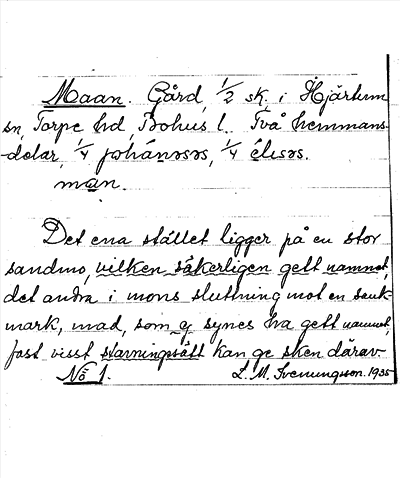 Maan. Gård, 1/2 sk. i Hjärtum
sn, Torpe hd, Bohus l. Två hemmans-
-delar, 1/4 johánəsəs, 1/4 élisəs.
man.
Det ena stället ligger på en stor
sandmo, vilken säkerligen gett namnet,
det andra i mons sluttning mot en sank-
mark, mad, som ej synes ha gett namnet,
fast visst stavningssätt kan ge sken därav.
No 1. L. M. Svenungsson. 1935